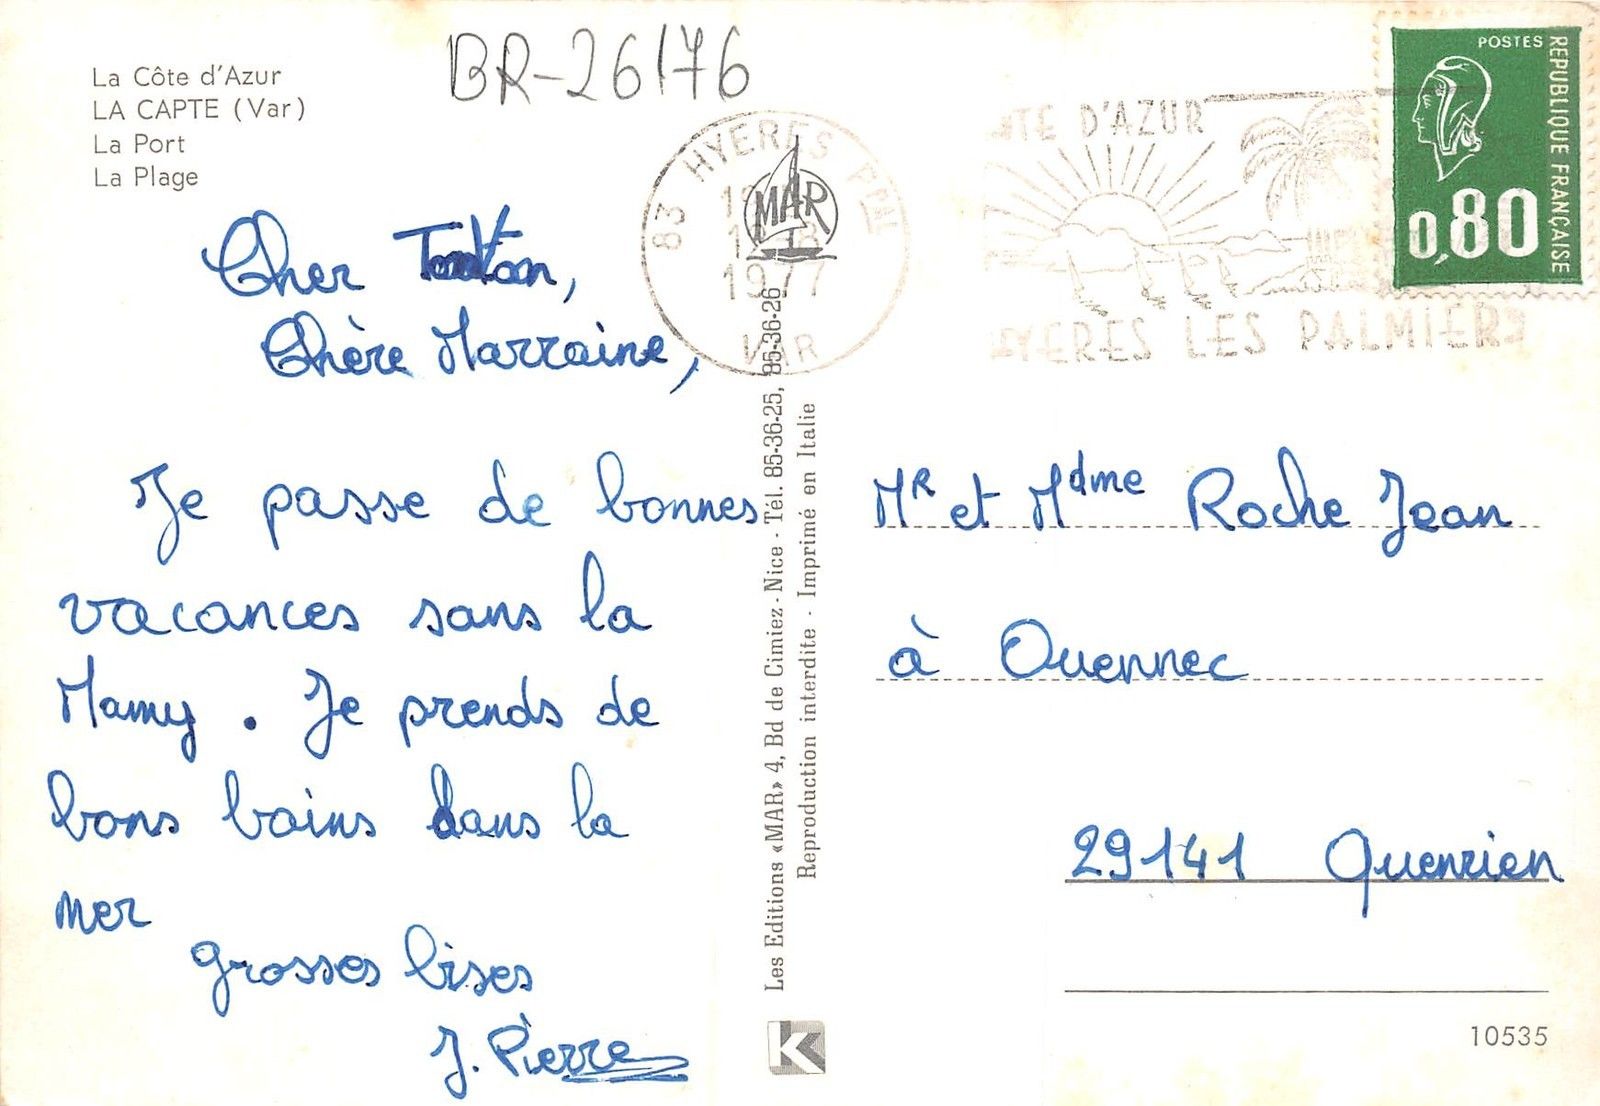 BR-26176
La Côte d'Azur
LA CAPTE (Var)
La Port
La Plage
Cher Tonton,
Chère Marraine,
Je passe de bonnes
vacances sans la
Mamy. Je prends de
bons bains dans la
mer
grosses bises
J. Pierre
83 HYERES PPAL
1977
VAR
MAR
Les Editions «MAR» 4, Bd de Cimiez - Nice - Tél. 85-36-25, 85-36-26
Reproduction interdite - Imprimé en Italie
K
TE D'AZUR
HYERES LES PALMIERS
POSTES
REPUBLIQUE FRANÇAISE
0,80
MR et Mdme Roche Jean
à Ouennec
29141 Quenrien
10535